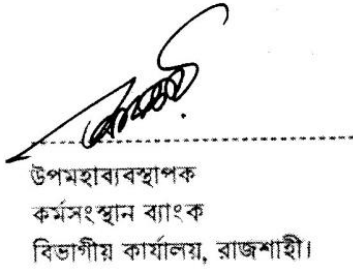 উপমহাব্যবস্থাপক
কর্মসংস্থান ব্যাংক
বিভাগীয় কার্যালয়, রাজশাহী।